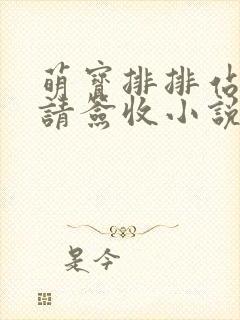 萌寶排排佔
請簽收小說
是今